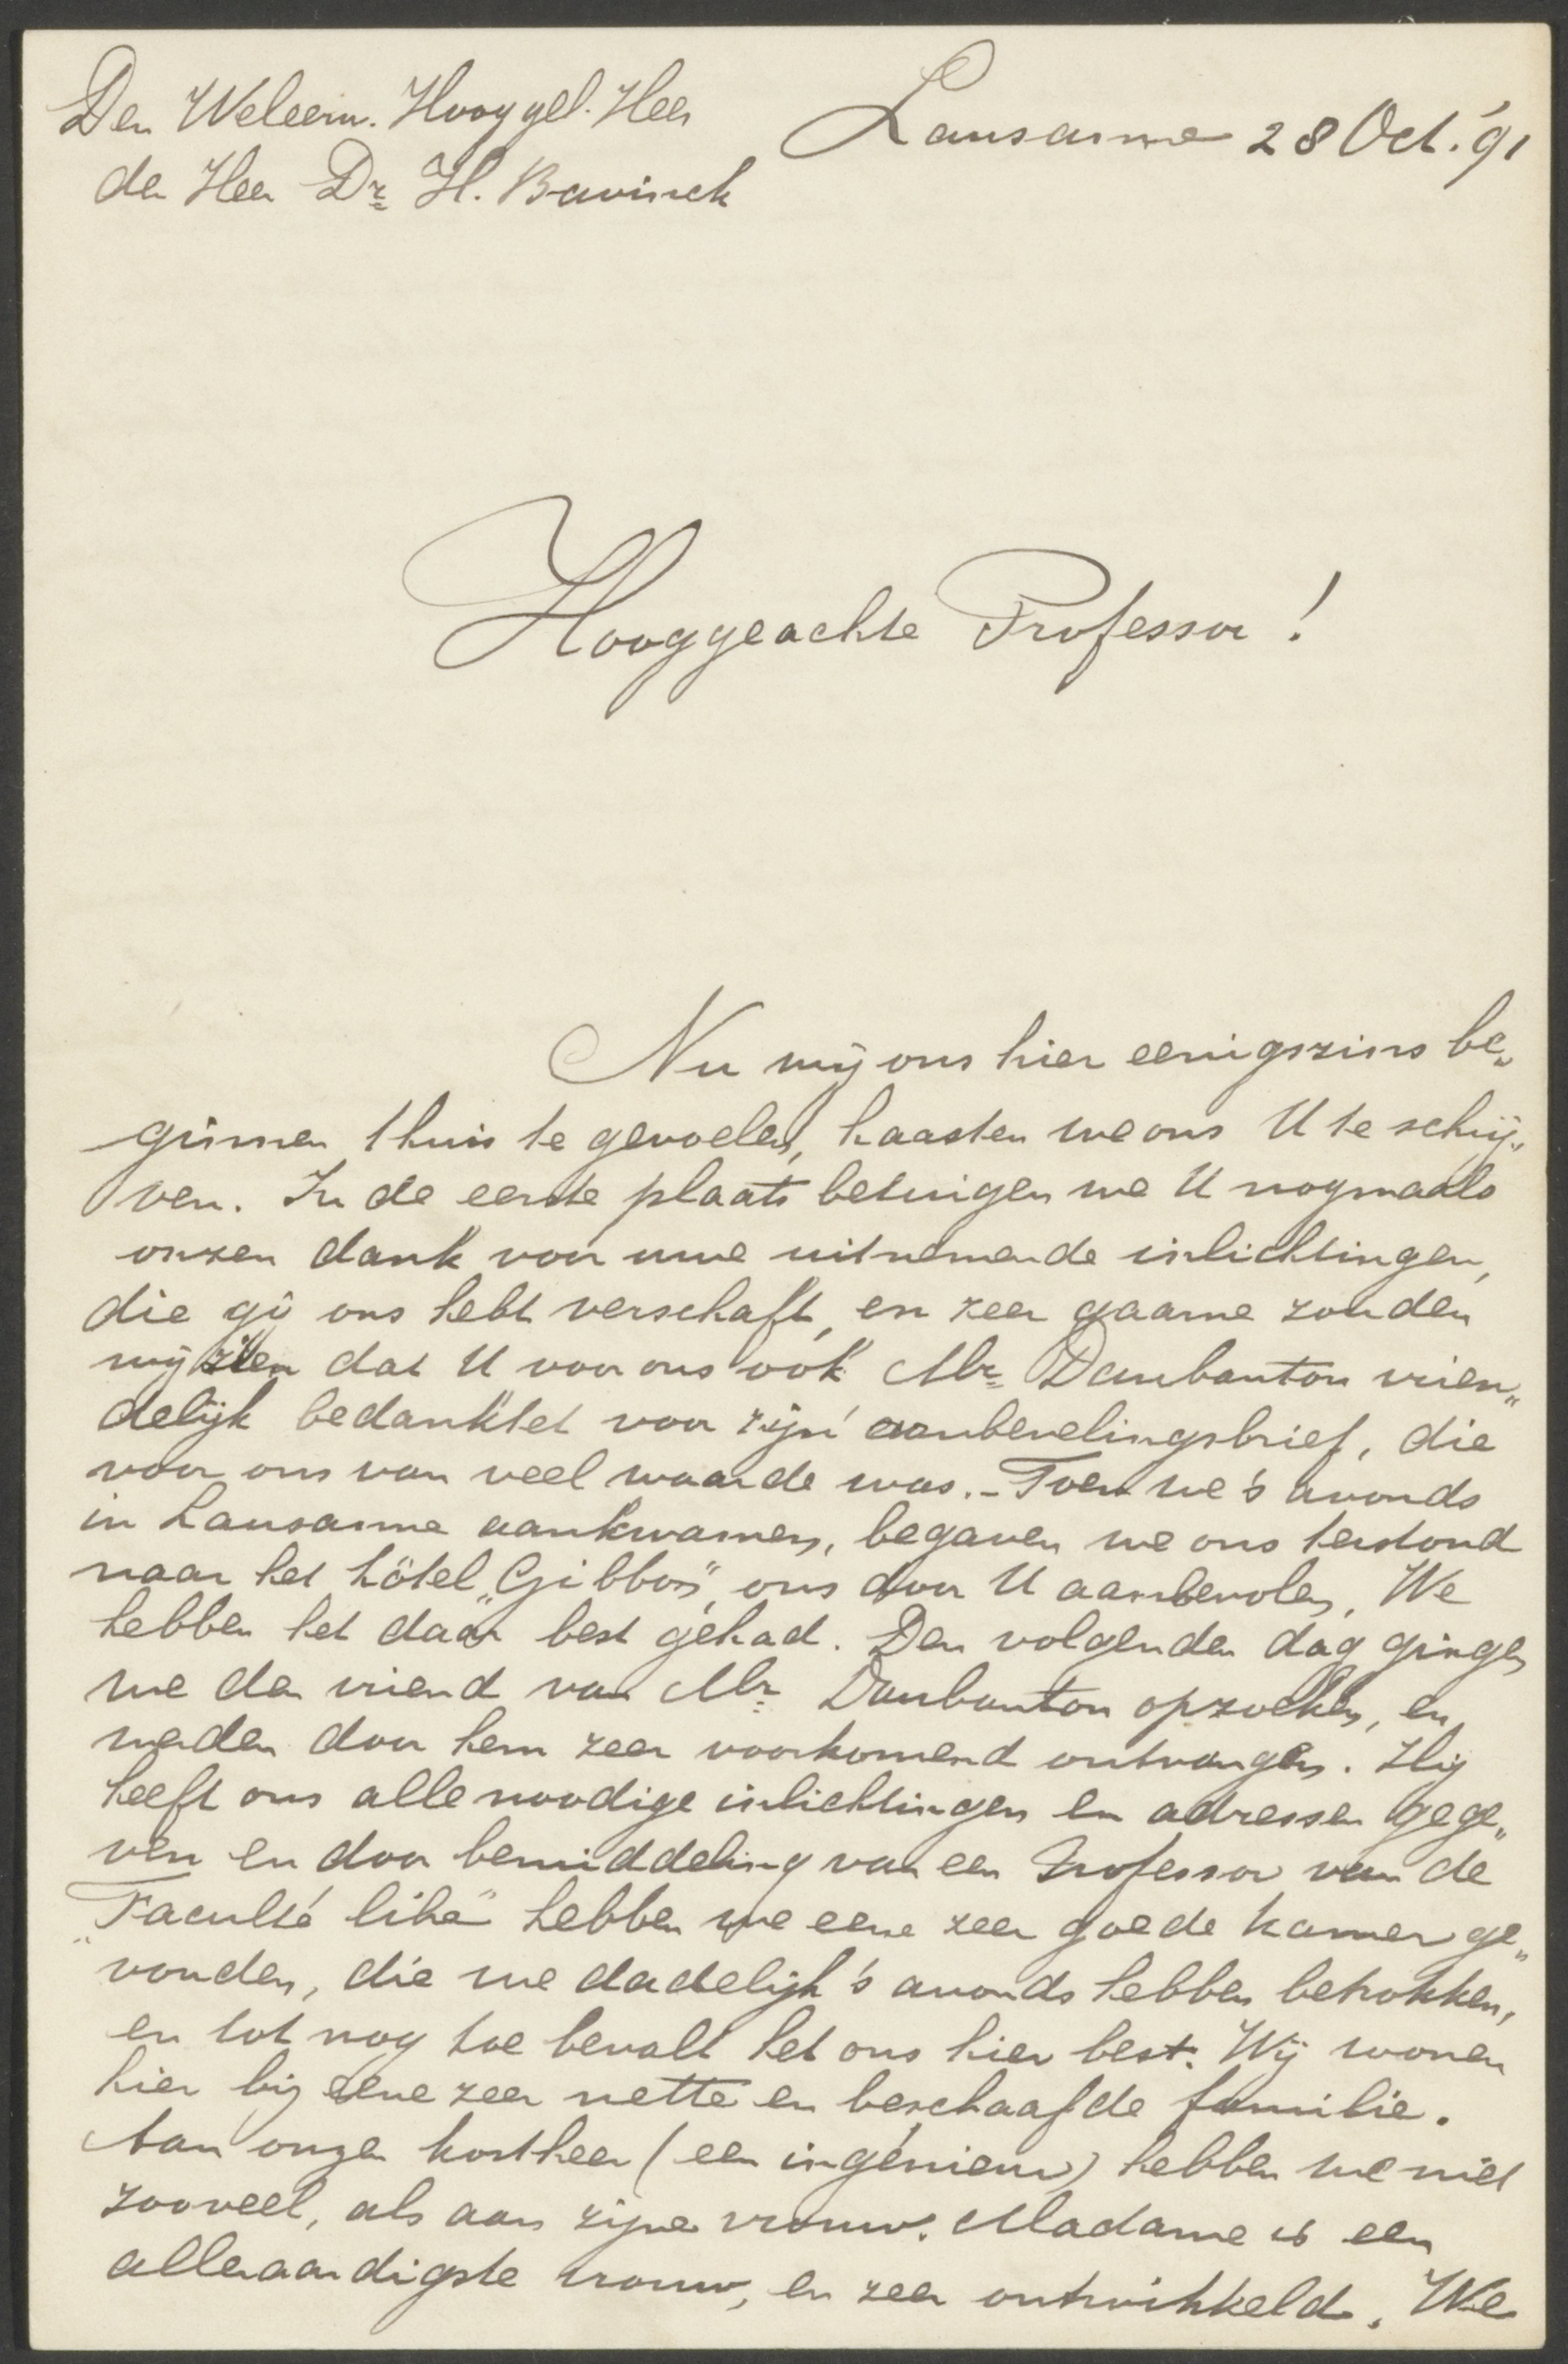 Den Weleerw. Hooggel. Heer
den Heer Dr. H. Bavinck
Lausanne 28 Oct. '91
Hooggeachte Professor!
Nu wij ons hier eenigszins be„
ginnen thuis te gevoelen, haasten we ons U te schrij„
ven. In de eerste plaats betuigen we U nogmaals
onzen dank voor uwe uitnemende inlichtingen,
die gij ons hebt verschaft, en zeer gaarne zouden
wij zien dat U voor ons ook Mr. Daubanton vrien„
delijk bedanktet voor zijn aanbevelingsbrief, die
voor ons van veel waarde was. - Toen we 's avonds
in Lausanne aankwamen, begaven we ons terstond
naar het hôtel „Gibbon", ons door U aanbevolen. We
hebben het daar best gehad. Den volgenden dag gingen
we den vriend van Mr. Daubanton opzoeken, en
werden door hem zeer voorkomend ontvangen. Hij
heeft ons alle noodige inlichtingen en adressen gege„
ven en door bemiddeling van een Professor van de
„Faculté libre" hebben we eene zeer goede kamer ge„
vonden, die we dadelijk 's avonds hebben betrokken,
en tot nog toe bevalt het ons hier best. Wij wonen
hier bij eene zeer nette en beschaafde familie.
Aan onzen kostheer (een ingénieur) hebben we niet
zooveel, als aan zijne vrouw. Madame is een
alleraardigste vrouw, en zeer ontwikkeld. We